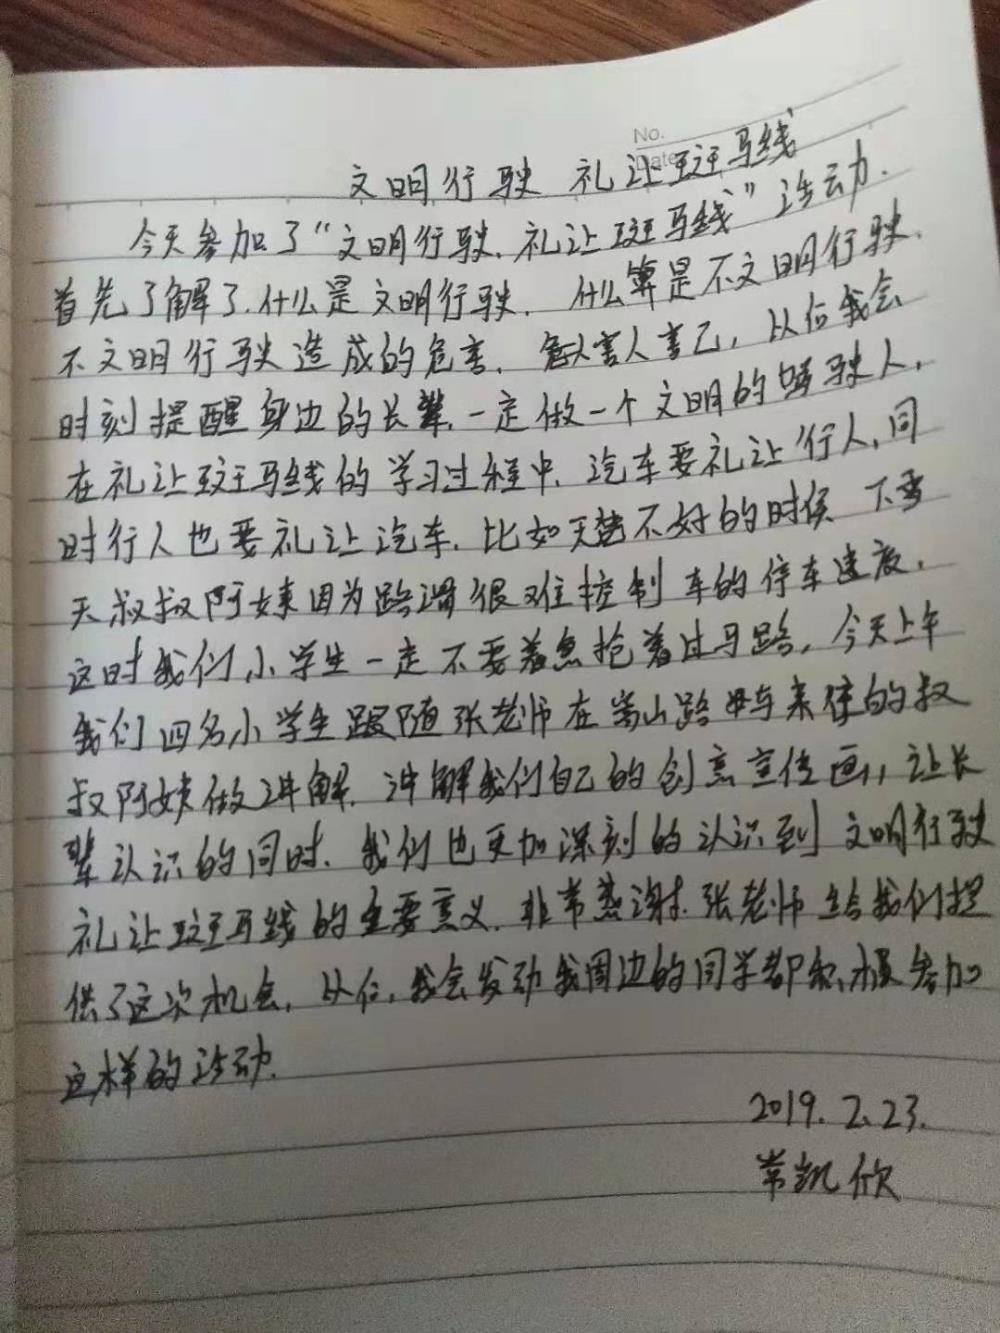 No.
Date
文明行驶 礼让斑马线
今天参加了“文明行驶.礼让斑马线”活动.
首先了解了.什么是文明行驶. 什么算是不文明行驶.
不文明行驶造成的危害. 害人害己, 从后我会
时刻提醒身边的长辈.一定做一个文明的驾驶人.
在礼让斑马线的学习过程中.汽车要礼让行人,同
时行人也要礼让汽车.比如天气不好的时候 下雪
天叔叔阿姨因为路滑很难控制车的停车速度.
这时我们小学生一定不要着急抢着过马路,今天上午
我们四名小学生跟随张老师在嵩山路与来往的叔
叔阿姨做讲解.讲解我们自己的创意宣传画,让长
辈认识的同时.我们也更加深刻的认识到文明行驶
礼让斑马线的重要意义.非常感谢.张老师给我们提
供了这次机会.从后,我会发动我周边的同学都积极参加
这样的活动.
2019.2.23.
常凯欣